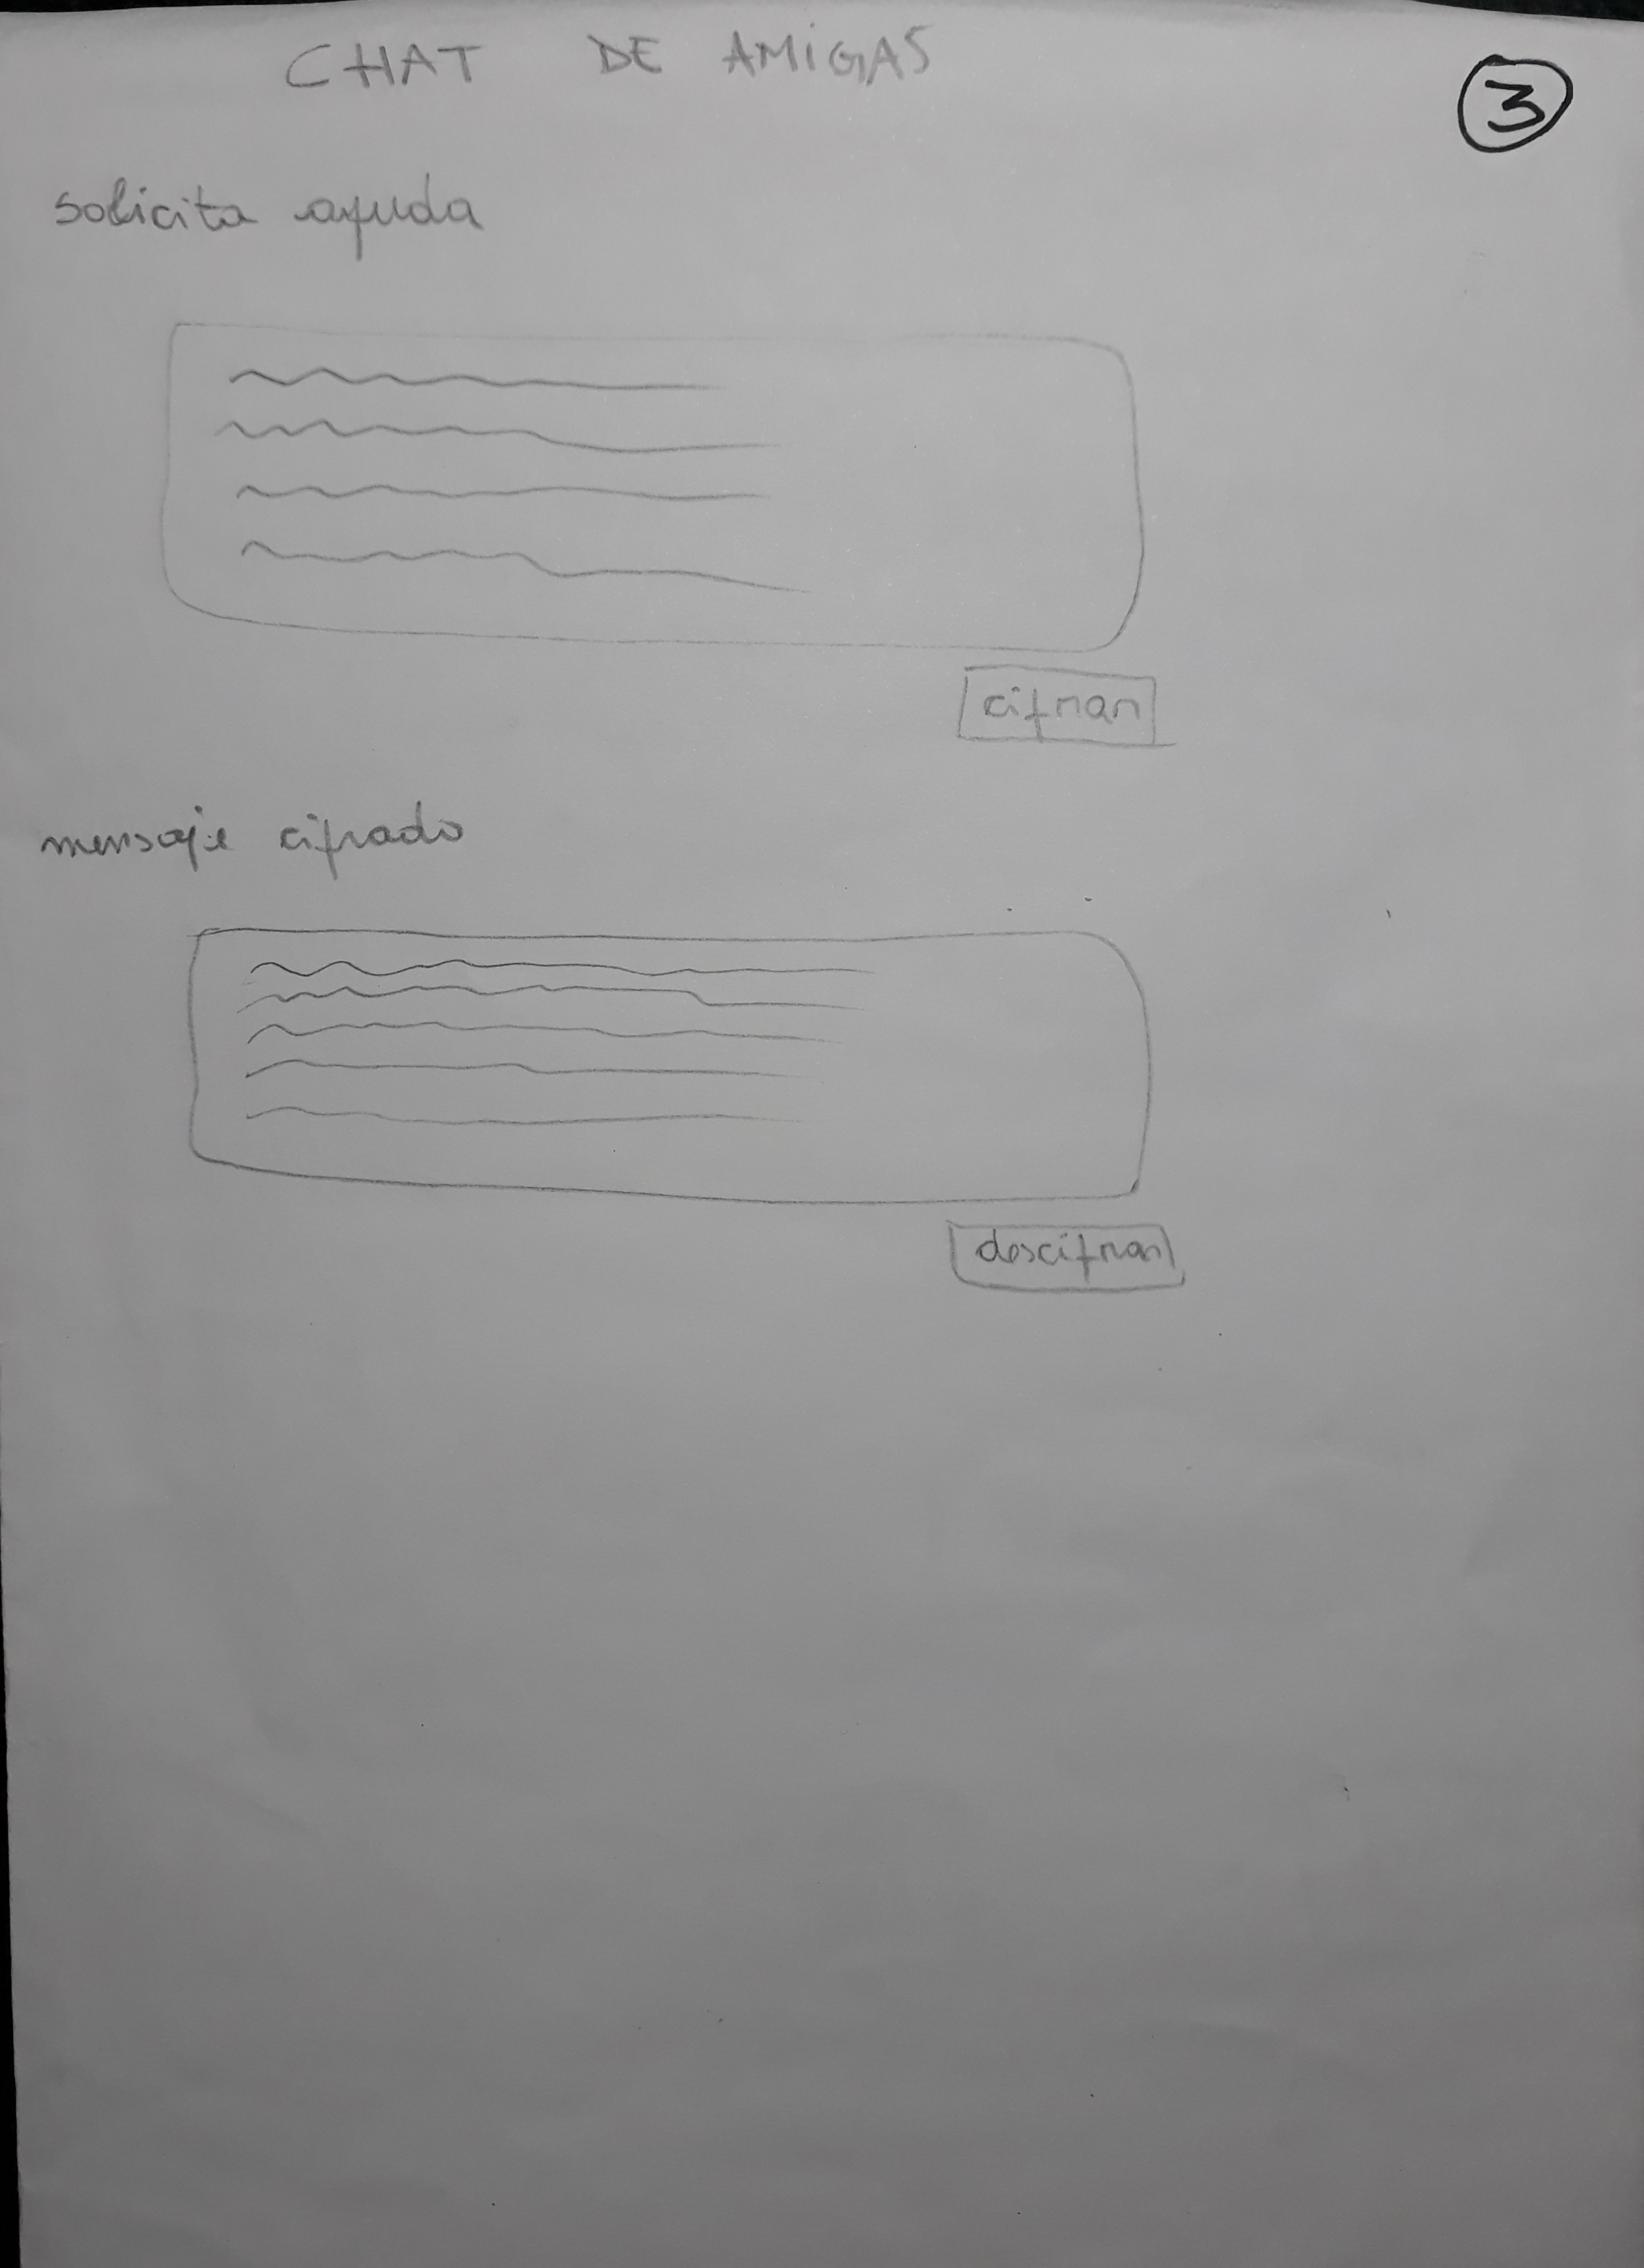 CHAT DE AMIGAS
3
solicita ayuda
cifrar
mensaje cifrado
descifrar